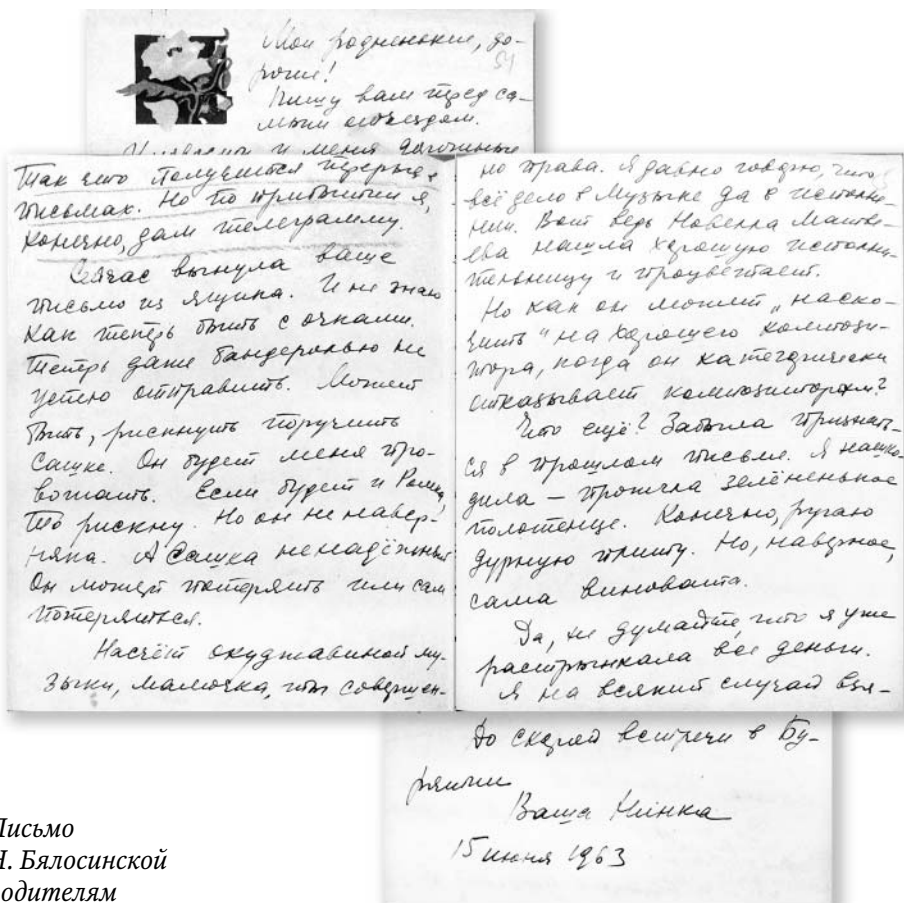 Мои родненькие, до-
рогие!
51
Пишу вам перед са-
мым отъездом.
и меня
Так что получится перерыв в
письмах. Но по прибытии я,
конечно, дам телеграмму.
Сейчас вынула ваше
письмо из ящика. И не знаю
как теперь быть с очками.
Теперь даже бандеролью не
успею отправить. Может
быть, рискнуть поручить
Сашке. Он будет меня про-
вожать. Если будет и Ромка,
то рискну. Но он не навер-
няка. А Сашка ненадёжный
Он может потерять или сам
потеряться.
Насчёт окуджавиной му-
зыки, мамочка, ты совершен-
но права. Я давно говорю, что
всё дело в музыке да в исполне-
нии. Вот ведь Новелла Матве-
ева нашла хорошую исполни-
тельницу и процветает.
Но как он может „наско-
чить“ на хорошего компози-
тора, когда он категорически
отказывает композиторам?
Что ещё? Забыла признать-
ся в прошлом письме. Я нашко-
дила – прожгла зелёненькое
полотенце. Конечно, ругаю
дурную плиту. Но, наверное,
сама виновата.
Да, не думайте, что я уже
растрынкала все деньги.
Я на всякий случай взя-
До скорой встречи в Бу-
рятии
Ваша Нинка
15 июня 1963
Письмо
Н. Бялосинской
родителям